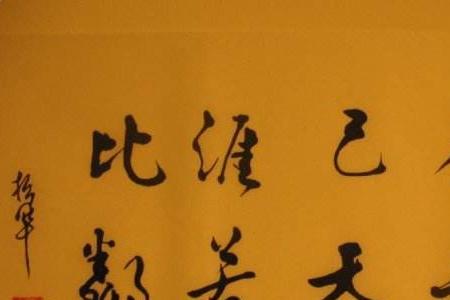 己天
涯若
比鄰